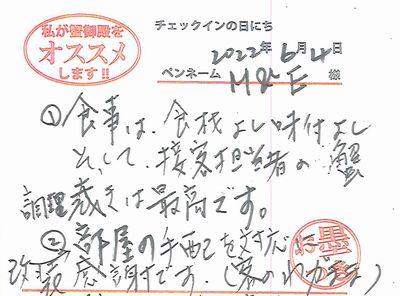 私が蟹御殿を
オススメ
します!!
チェックインの日にち
2022年6月4日
ペンネーム M&E 様
①食事は、食材よし味付よし
そして、接客担当者の蟹
調理裁きは最高です。
②部屋の手配を対応に
改装感謝です。(客のわがまま)
お墨